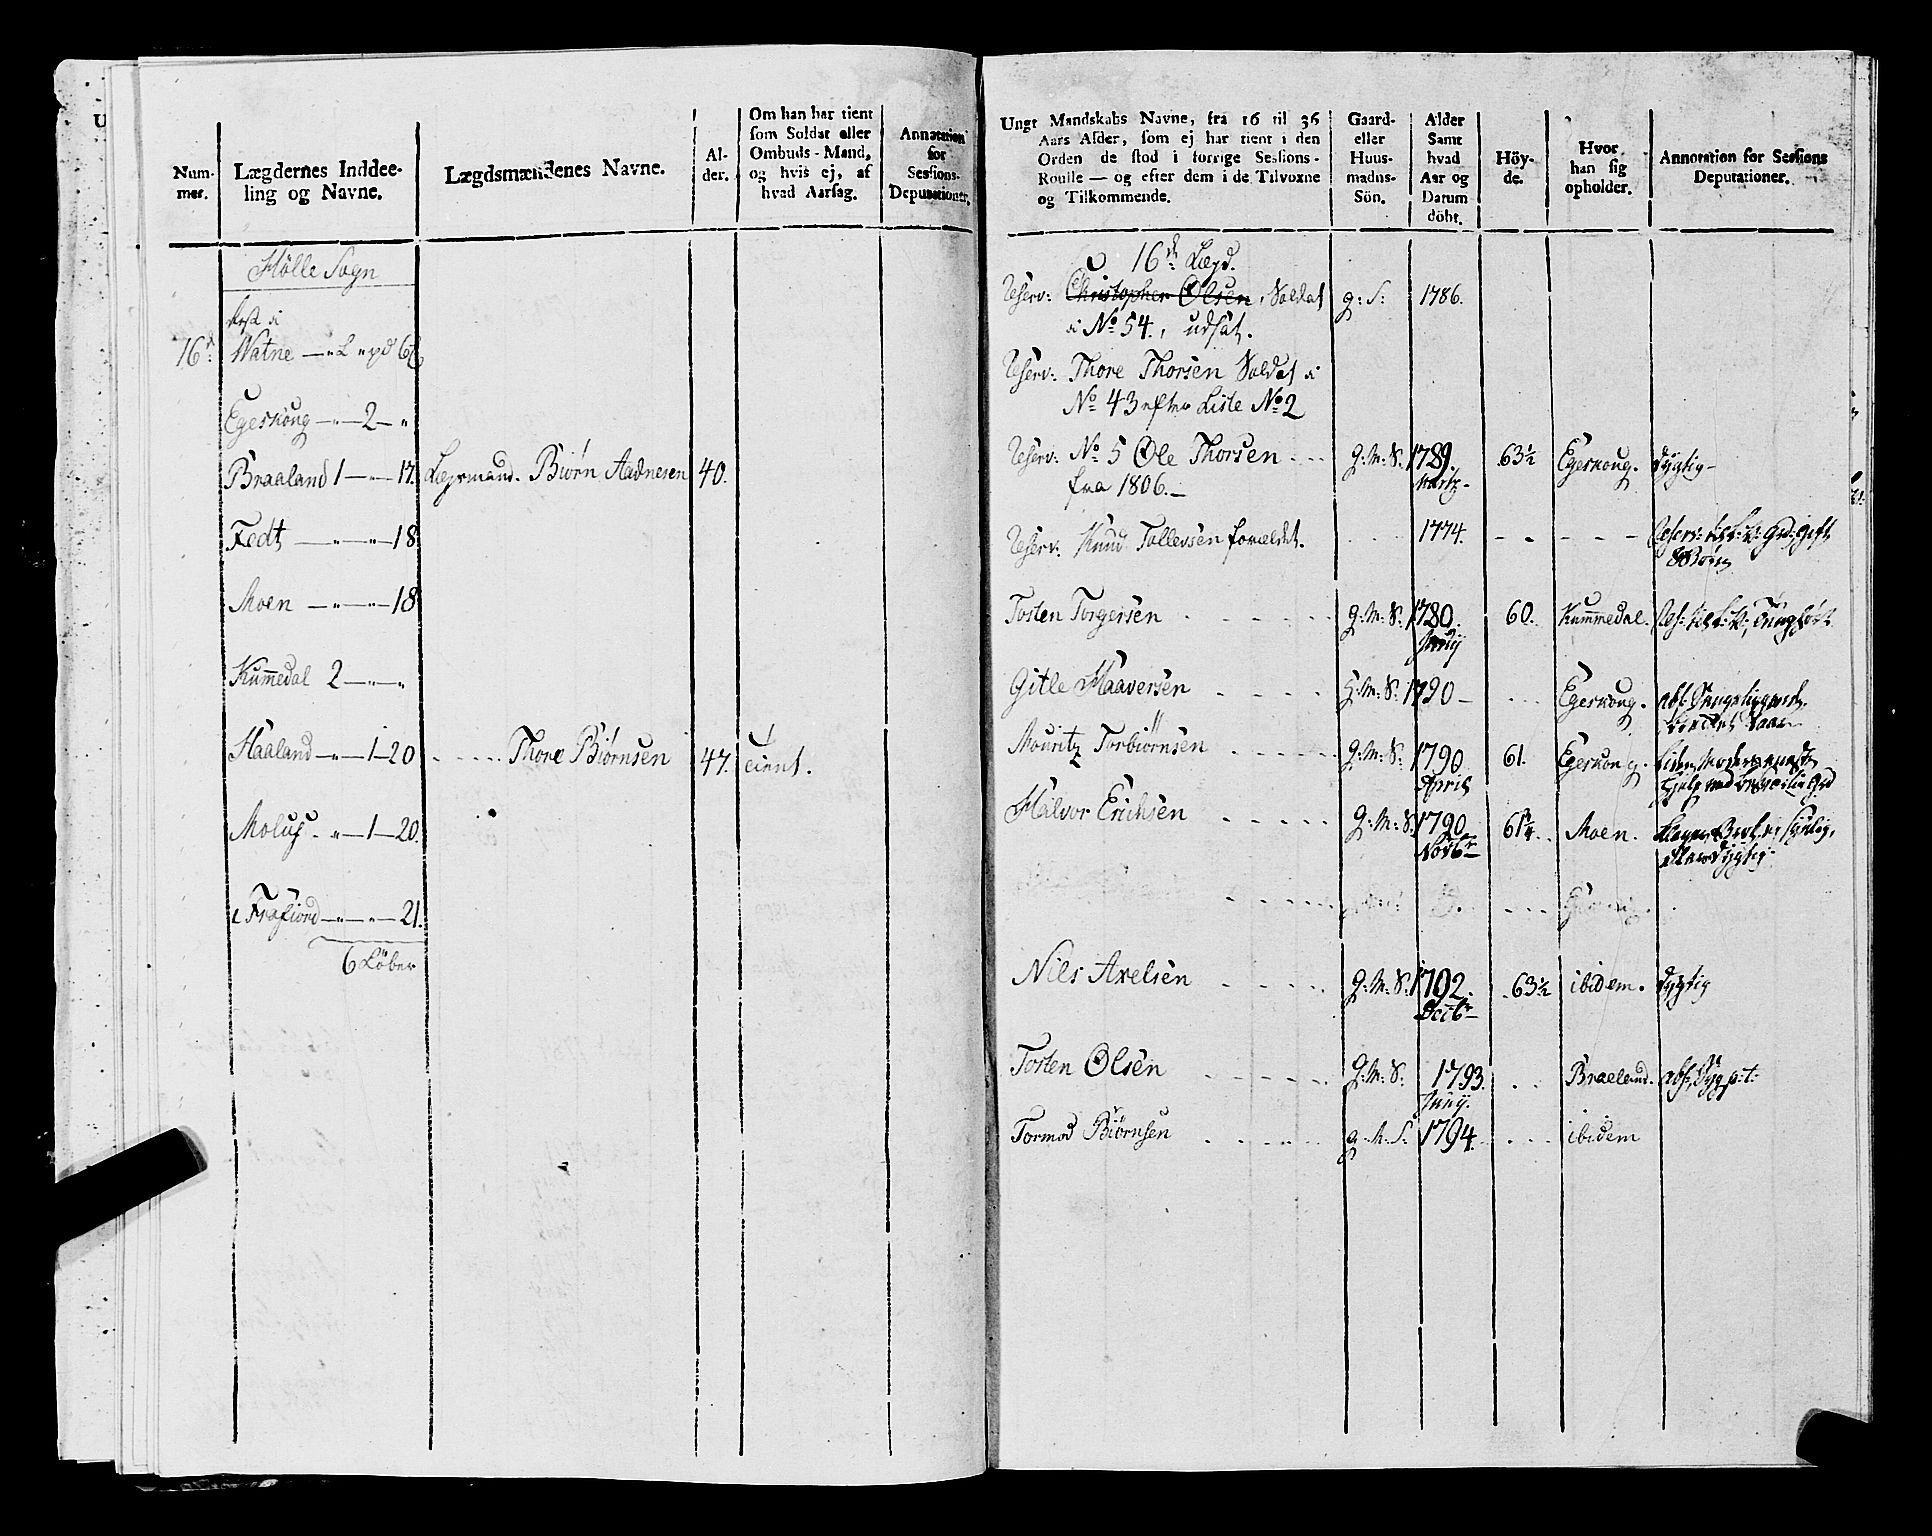 Num-
mer.
Lægdernes Inddee-
ling og Navne.
Lægdsmændenes Navne.
Al-
der.
Om han har tient
som Soldat eller
Ombuds-Mand,
og hvis ej, af
hvad Aarsag.
Annotation
for
Sessions-
Deputationer.
Hölle Sogn
16d:
Watne
Egeskoug — " — 2 — "
Braaland 1 — " — 17. Lægsmand. Biörn Aadnesen 40.
Fedt — " — " — 18
Moen — " — " — 18
Kummedal 2 — " — "
Haaland — " — 1 — 20 Thore Biørnsen 47. tient.
Moluf — " — 1 — 20.
Frafiord — " — " — 21.
6 Löber
Ungt Mandskabs Navne, fra 16 til 36
Aars Alder, som ej har tient i den
Orden de stod i forrige Sessions-
Roulle — og efter dem i de Tilvoxne
og Tilkommende.
Gaard-
eller
Huus-
mands-
Sön.
Alder
Samt
hvad
Aar og
Datum
döbt.
Höy-
de.
Hvor
han sig
opholder.
Annotation for Sessions
Deputationer.
16d: Lægd.
Reserv: Christopher Olsen, Soldat g: S: 1786.
i No 54, udsat.
Reserv: Thore Thorsen Soldat i
No 43 efter Liste No 2
Reserv: No 5 Ole Thorsen G: M: S. 1789. 63½ Egeskoug. Dygtig —
fra 1806. — Martz —
Reserv: Knud Tollevsen foreldet. 1774.
8 Børn
Tosten Torgersen G: M: S. 1780. 60. Kummedal.
Gitle Haaversen H: M: S. 1790 — Egeskoug.
Mouritz Torbiørnsen G: M: S. 1790 61. Egeskoug.
April
Halvor Erichsen G: M: S. 1790 61¼ Moen.
Novbr
Nils Axelsen G: M: S. 1792. 63½ ibidem. Dygtig
Decbr
Tosten Olsen G: M: S. 1793. Braaland.
Juny.
Tormod Biørnsen g: M: S. 1794. ibidem